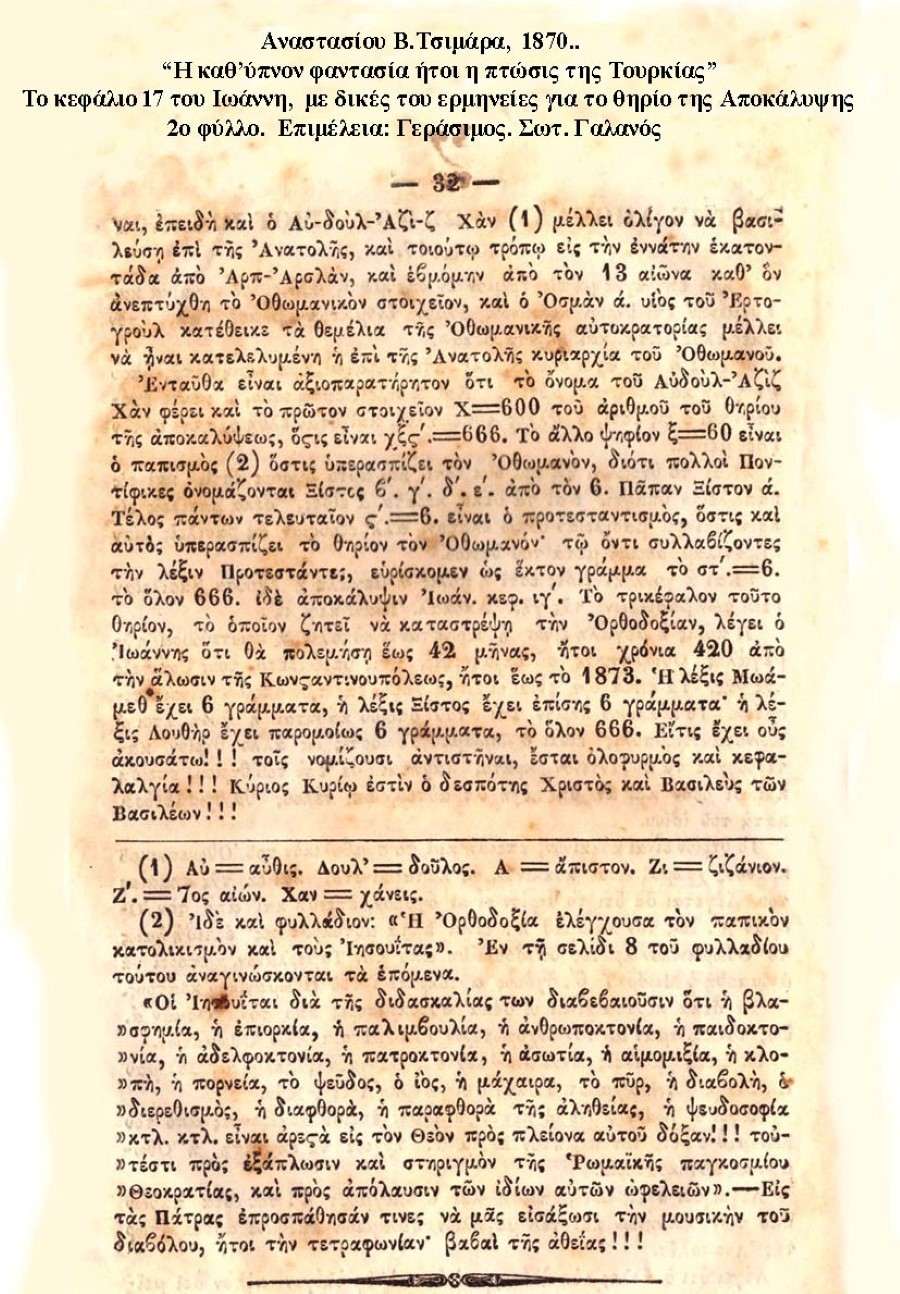 Αναστασίου Β.Τσιμάρα, 1870..
“Η καθ’ύπνον φαντασία ήτοι η πτώσις της Τουρκίας”
Το κεφάλιο 17 του Ιωάννη, με δικές του ερμηνείες για το θηρίο της Αποκάλυψης
2ο φύλλο. Επιμέλεια: Γεράσιμος. Σωτ. Γαλανός
— 32 —
ναι, ἐπειδὴ καὶ ὁ Αὐ-δοὺλ-Ἀζὶ-ζ Χὰν (1) μέλλει ὀλίγον νὰ βασι-
λεύσῃ ἐπὶ τῆς Ἀνατολῆς, καὶ τοιούτῳ τρόπῳ εἰς τὴν ἐννάτην ἑκατον-
τάδα ἀπὸ Ἀρπ-Ἀρσλὰν, καὶ ἑβμόμην ἀπὸ τὸν 13 αἰῶνα καθ’ ὃν
ἀνεπτύχθη τὸ Ὀθωμανικὸν στοιχεῖον, καὶ ὁ Ὀσμὰν ά. υἱὸς τοῦ Ἐρτο-
γροὺλ κατέθεικε τὰ θεμέλια τῆς Ὀθωμανικῆς αὐτοκρατορίας μέλλει
νὰ ᾖναι κατελελυμένη ἡ ἐπὶ τῆς Ἀνατολῆς κυριαρχία τοῦ Ὀθωμανοῦ.
Ἐνταῦθα εἶναι ἀξιοπαρατήρητον ὅτι τὸ ὄνομα τοῦ Αὐδοὺλ-Ἀζὶζ
Χὰν φέρει καὶ τὸ πρῶτον στοιχεῖον Χ=600 τοῦ ἀριθμοῦ τοῦ θηρίου
τῆς ἀποκαλύψεως, ὅςις εἶναι χξς΄.=666. Τὸ ἄλλο ψηφίον ξ=60 εἶναι
ὁ παπισμὸς (2) ὅστις ὑπερασπίζει τὸν Ὀθωμανὸν, διότι πολλοὶ Πον-
τίφικες ὀνομάζονται Ξίστος β΄. γ΄. δ΄. ε΄. ἀπὸ τὸν 6. Πᾶπαν Ξίστον ά.
Τέλος πάντων τελευταῖον ς΄.=6. εἶναι ὁ προτεσταντισμὸς, ὅστις καὶ
αὐτὸς ὑπερασπίζει τὸ θηρίον τὸν Ὀθωμανόν· τῷ ὄντι συλλαβίζοντες
τὴν λέξιν Προτεστάντες, εὑρίσκομεν ὡς ἕκτον γράμμα τὸ στ΄.=6.
τὸ ὅλον 666. ἰδὲ ἀποκάλυψιν Ἰωάν. κεφ. ιγ΄. Τὸ τρικέφαλον τοῦτο
θηρίον, τὸ ὁποῖον ζητεῖ νὰ καταστρέψῃ τὴν Ὀρθοδοξίαν, λέγει ὁ
Ἰωάννης ὅτι θὰ πολεμήσῃ ἕως 42 μῆνας, ἤτοι χρόνια 420 ἀπὸ
τὴν ἅλωσιν τῆς Κωνςαντινουπόλεως, ἤτοι ἕως τὸ 1873. Ἡ λέξις Μωά-
μεθ ἔχει 6 γράμματα, ἡ λέξις Ξίστος ἔχει ἐπίσης 6 γράμματα· ἡ λέ-
ξις Λουθὴρ ἔχει παρομοίως 6 γράμματα, τὸ ὅλον 666. Εἴτις ἔχει οὖς
ἀκουσάτω! ! ! τοῖς νομίζουσι ἀντιστῆναι, ἔσται ὀλοφυρμὸς καὶ κεφα-
λαλγία ! ! ! Κύριος Κυρίῳ ἐστὶν ὁ δεσπότης Χριστὸς καὶ Βασιλεὺς τῶν
Βασιλέων ! ! !
(1) Αὐ = αὖθις. Δουλ’ = δοῦλος. Α = ἄπιστον. Ζι = ζιζάνιον.
Ζ΄. = 7ος αἰών. Χαν = χάνεις.
(2) Ἰδὲ καὶ φυλλάδιον: «Ἡ Ὀρθοδοξία ἐλέγχουσα τὸν παπικὸν
κατολικισμὸν καὶ τοὺς Ἰησουΐτας». Ἐν τῇ σελίδι 8 τοῦ φυλλαδίου
τούτου ἀναγινώσκονται τὰ ἑπόμενα.
«Οἱ Ἰησουΐται διὰ τῆς διδασκαλίας των διαβεβαιοῦσιν ὅτι ἡ βλα-
»σφημία, ἡ ἐπιορκία, ἡ παλιμβουλία, ἡ ἀνθρωποκτονία, ἡ παιδοκτο-
»νία, ἡ ἀδελφοκτονία, ἡ πατροκτονία, ἡ ἀσωτία, ἡ αἱμομιξία, ἡ κλο-
»πὴ, ἡ πορνεία, τὸ ψεῦδος, ὁ ἰὸς, ἡ μάχαιρα, τὸ πῦρ, ἡ διαβολὴ, ὁ
»διερεθισμὸς, ἡ διαφθορὰ, ἡ παραφθορὰ τῆς ἀληθείας, ἡ ψευδοσοφία
»κτλ. κτλ. εἶναι ἀρεςὰ εἰς τὸν Θεὸν πρὸς πλείονα αὐτοῦ δόξαν! ! ! τοὐ-
»τέστι πρὸς ἐξάπλωσιν καὶ στηριγμὸν τῆς Ῥωμαϊκῆς παγκοσμίου
»Θεοκρατίας, καὶ πρὸς ἀπόλαυσιν τῶν ἰδίων αὐτῶν ὠφελειῶν».—Εἰς
τὰς Πάτρας ἐπροσπάθησάν τινες νὰ μᾶς εἰσάξωσι τὴν μουσικὴν τοῦ
διαβόλου, ἤτοι τὴν τετραφωνίαν· βαβαὶ τῆς ἀθεΐας ! ! !